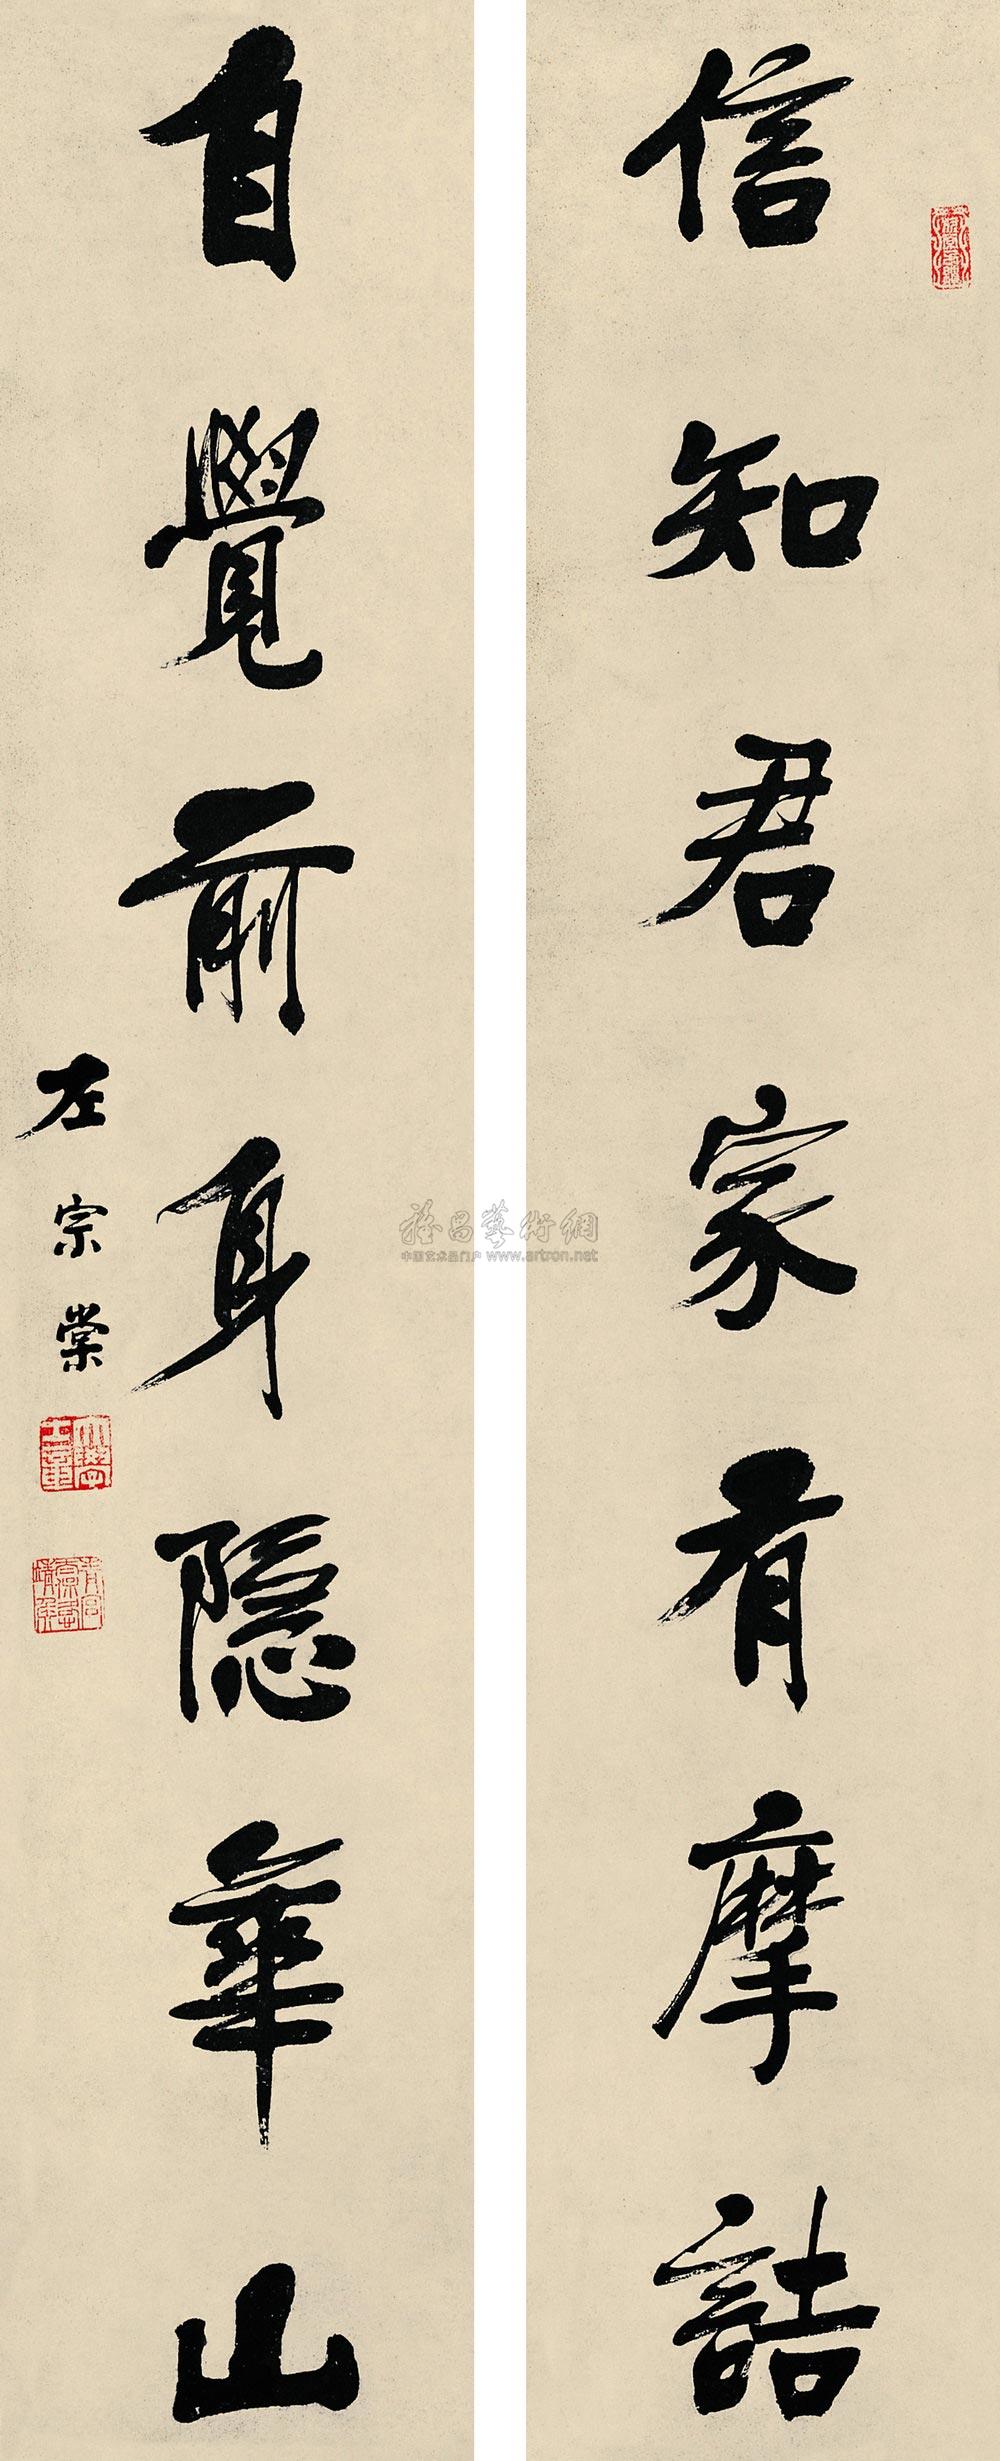 信知君家有摩詰
自覺前身隱華山
左宗棠
雅昌藝術網
中国艺术品门户 www.artron.net